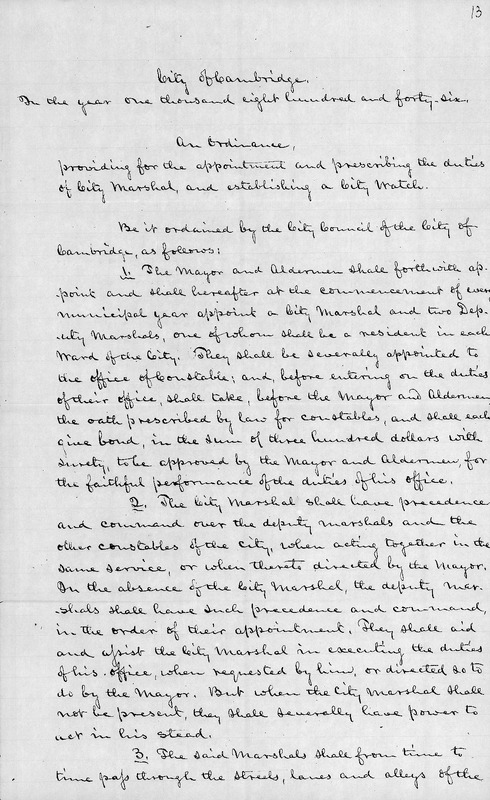 13
City of Cambridge.
In the year one thousand eight hundred and forty-six.
An Ordinance,
providing for the appointment and prescribing the duties
of City Marshal, and establishing a City Watch.
Be it ordained by the City Council of the City of
Cambridge, as follows:
1. The Mayor and Aldermen shall forthwith ap-
-point and shall hereafter at the commencement of every
municipal year appoint a City Marshal and two Dep-
-uty Marshals, one of whom shall be a resident in each
Ward of the City. They shall be severally appointed to
the office of Constable; and, before entering on the duties
of their office, shall take, before the Mayor and Aldermen,
the oath prescribed by law for constables, and shall each
give bond, in the sum of three hundred dollars with
surety, to be approved by the Mayor and Aldermen, for
the faithful performance of the duties of his office.
2. The City Marshal shall have precedence
and command over the deputy marshals and the
other constables of the city, when acting together in the
same service, or when thereto directed by the Mayor.
In the absence of the City Marshal, the deputy mar-
-shals shall have such precedence and command,
in the order of their appointment. They shall aid
and assist the City Marshal in executing the duties
of his office, when requested by him, or directed so to
do by the Mayor. But when the City Marshal shall
not be present, they shall severally have power to
act in his stead.
3. The said Marshals shall from time to
time pass through the streets, lanes and alleys of the